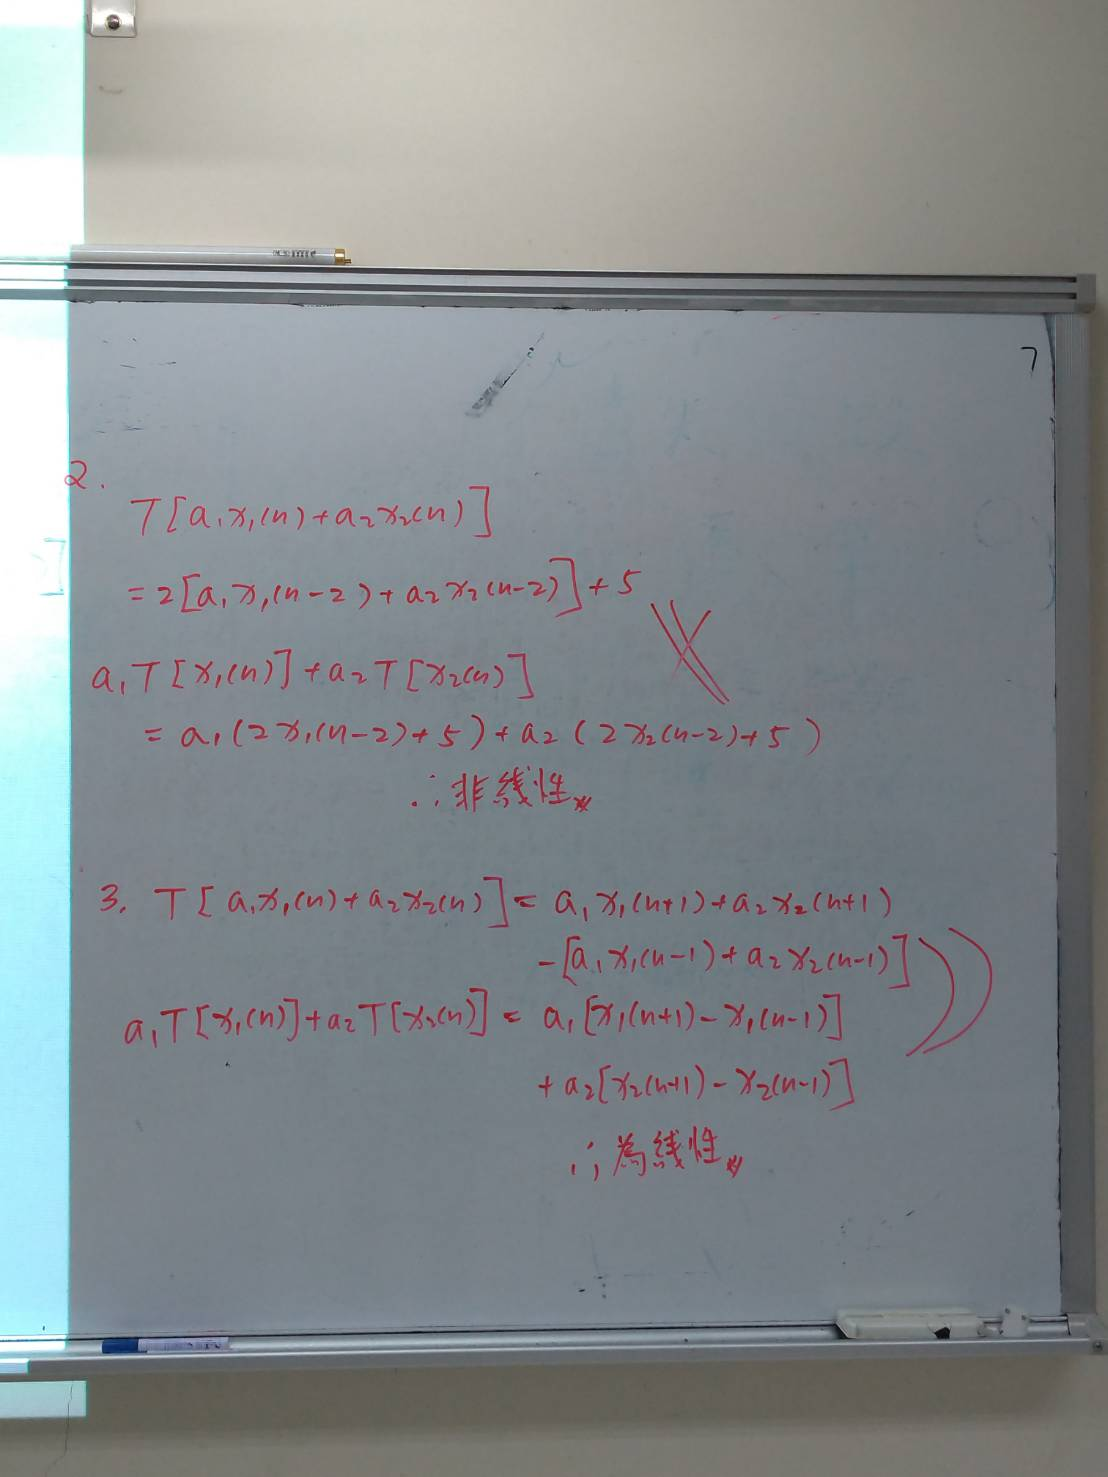 7
2.
T[a₁x₁(n)+a₂x₂(n)]
=2[a₁x₁(n-2)+a₂x₂(n-2)]+5
a₁T[x₁(n)]+a₂T[x₂(n)]
=a₁(2x₁(n-2)+5)+a₂(2x₂(n-2)+5)
∴非線性
3. T[a₁x₁(n)+a₂x₂(n)]=a₁x₁(n+1)+a₂x₂(n+1)
-[a₁x₁(n-1)+a₂x₂(n-1)]
a₁T[x₁(n)]+a₂T[x₂(n)]=a₁[x₁(n+1)-x₁(n-1)]
+a₂[x₂(n+1)-x₂(n-1)]
∴為線性